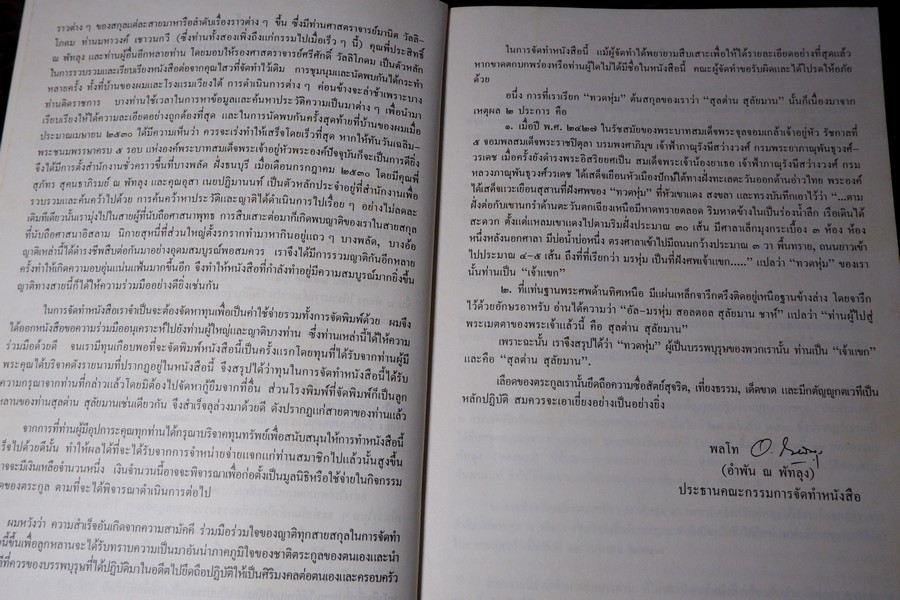 ราวต่าง ๆ ของสกุลแต่ละสายมาหารือลำดับเรื่องราวต่าง ๆ ขึ้น ซึ่งมีท่านศาสตราจารย์มานิต วัลลิ–
โภดม ท่านมหาวงศ์ เชาวนกวี (ซึ่งท่านทั้งสองเพิ่งถึงแก่กรรมไปเมื่อเร็ว ๆ นี้) คุณพี่ประสิทธิ์
ณ พัทลุง และท่านผู้อื่นอีกหลายท่าน โดยมอบให้รองศาสตราจารย์ศรีศักดิ์ วัลลิโภดม เป็นตัวหลัก
ในการรวบรวมและเรียบเรียงหนังสือต่อจากคุณไสวที่จัดทำไว้เดิม การชุมนุมและนัดพบกันได้กระทำ
หลายครั้ง ทั้งที่บ้านของผมและโรงแรมเวียงใต้ การดำเนินการต่าง ๆ ค่อนข้างจะล่าช้าเพราะบาง
ท่านติดราชการ บางท่านใช้เวลาในการหาข้อมูลและค้นหาประวัติความเป็นมาต่าง ๆ เพื่อนำมา
เรียบเรียงให้ได้ความละเอียดอย่างถูกต้องที่สุด และในการนัดพบกันครั้งสุดท้ายที่บ้านของผมเมื่อ
ประมาณเมษายน ๒๕๓๐ ได้มีความเห็นว่า ควรจะเร่งทำให้เสร็จโดยเร็วที่สุด หากให้ทันวันเฉลิม–
พระชนมพรรษาครบ ๕ รอบ แห่งองค์พระบาทสมเด็จพระเจ้าอยู่หัวพระองค์ปัจจุบันก็จะเป็นการดียิ่ง
จึงได้มีการตั้งสำนักงานชั่วคราวขึ้นที่บางพลัด ฝั่งธนบุรี เมื่อเดือนกรกฎาคม ๒๕๓๐ โดยมีคุณพี่
สุภัทร สุคนธาภิรมย์ ณ พัทลุง และคุณอุสา เนยปฏิมานนท์ เป็นตัวหลักประจำอยู่ที่สำนักงานเพื่อ
รวบรวมและค้นคว้าไปด้วย การค้นคว้าหาประวัติและญาติได้ดำเนินการไปเรื่อย ๆ อย่างไม่ลดละ
เดิมทีเดียวนั้นเรามุ่งไปในสายผู้ที่นับถือศาสนาพุทธ การสืบเสาะต่อมาก็เกิดพบญาติของเราในสายสกุล
ที่นับถือศาสนาอิสลาม นิกายสุหนี่ที่ส่วนใหญ่ตั้งรกรากทำมาหากินอยู่แถว ๆ บางพลัด, บางอ้อ
ญาติเหล่านี้ได้ดำรงชีพสืบต่อกันมาอย่างอุดมสมบูรณ์พอสมควร เราจึงได้มีการรวมญาติกันอีกหลาย
ครั้งทำให้เกิดความอบอุ่นแน่นแฟ้นมากขึ้นอีก จึงทำให้หนังสือที่กำลังทำอยู่มีความสมบูรณ์มากยิ่งขึ้น
ญาติทางสายนี้ก็ได้ให้ความร่วมมืออย่างดียิ่งเช่นกัน
ในการจัดทำหนังสือเราจำเป็นจะต้องจัดหาทุนเพื่อเป็นค่าใช้จ่ายรวมทั้งการจัดพิมพ์ด้วย ผมจึง
ได้ออกหนังสือขอความร่วมมืออนุเคราะห์ไปยังท่านผู้ใหญ่และญาติบางท่าน ซึ่งท่านเหล่านี้ได้ให้ความ
ร่วมมือด้วยดี จนเรามีทุนเกือบพอที่จะจัดพิมพ์หนังสือนี้เป็นครั้งแรกโดยทุนที่ได้รับจากท่านผู้มี
พระคุณได้บริจาคดังรายนามที่ปรากฏอยู่ในหนังสือนี้ จึงสรุปได้ว่าทุนในการจัดทำหนังสือนี้ได้รับ
ความกรุณาจากท่านที่กล่าวแล้วโดยมิต้องไปจัดหากู้ยืมจากที่อื่น ส่วนโรงพิมพ์ที่จัดพิมพ์ก็เป็นลูก
หลานของท่านสุลต่าน สุลัยมานเช่นเดียวกัน จึงสำเร็จลุล่วงมาด้วยดี ดังปรากฏแก่สายตาของท่านแล้ว
จากการที่ท่านผู้มีอุปการะคุณทุกท่านได้กรุณาบริจาคทุนทรัพย์เพื่อสนับสนุนให้การทำหนังสือนี้
ร็จไปด้วยดีนั้น ทำให้ผลได้ที่จะได้รับจากการจำหน่ายจ่ายแจกแก่ท่านสมาชิกไปแล้วนั้นสูงขึ้น
าจจะมีเงินเหลือจำนวนหนึ่ง เงินจำนวนนี้อาจจะพิจารณาเพื่อก่อตั้งเป็นมูลนิธิหรือใช้จ่ายในกิจกรรม
ดของตระกูล ตามที่จะได้พิจารณาดำเนินการต่อไป
ผมหวังว่า ความสำเร็จอันเกิดจากความสามัคคี ร่วมมือร่วมใจของญาติทุกสายสกุลในการจัดทำ
นี้ขึ้นเพื่อลูกหลานจะได้รับทราบความเป็นมาอันน่าภาคภูมิใจของชาติตระกูลของตนเองและนำ
ดีที่ควรของบรรพบุรุษที่ได้ปฏิบัติมาในอดีตไปยึดถือปฏิบัติให้เป็นศิริมงคลต่อตนเองและครอบครัว
ในการจัดทำหนังสือนี้ แม้ผู้จัดทำได้พยายามสืบเสาะเพื่อให้ได้รายละเอียดอย่างที่สุดแล้ว
หากขาดตกบกพร่องหรือท่านผู้ใดไม่ได้มีชื่อในหนังสือนี้ คณะผู้จัดทำขอรับผิดและได้โปรดให้อภัย
ด้วย
อนึ่ง การที่เราเรียก “ทวดหุ่ม” ต้นสกุลของเราว่า “สุลต่าน สุลัยมาน” นั้นก็เนื่องมาจาก
เหตุผล ๒ ประการ คือ
๑. เมื่อปี พ.ศ. ๒๔๒๗ ในรัชสมัยของพระบาทสมเด็จพระจุลจอมเกล้าเจ้าอยู่หัว รัชกาลที่
๕ จอมพลสมเด็จพระราชปิตุลา บรมพงศาภิมุข เจ้าฟ้าภาณุรังษีสว่างวงศ์ กรมพระยาภาณุพันธุวงศ์–
วรเดช เมื่อครั้งยังดำรงพระอิสริยยศเป็น สมเด็จพระเจ้าน้องยาเธอ เจ้าฟ้าภาณุรังษีสว่างวงศ์ กรม
หลวงภาณุพันธุวงศ์วรเดช ได้เสด็จเยือนหัวเมืองปักษ์ใต้ทางฝั่งทะเลตะวันออกด้านอ่าวไทย พระองค์
ได้เสด็จแวะเยือนสุสานที่ฝังศพของ “ทวดหุ่ม” ที่หัวเขาแดง สงขลา และทรงบันทึกเอาไว้ว่า “...ตาม
ฝั่งต่อกับเขานกรำด้านตะวันตกเฉียงเหนือมีหาดทรายตลอด ริมหาดข้างในเป็นร่องน้ำลึก เรือเดินได้
สะดวก ตั้งแต่แหลมเขาแดงไปตามริมฝั่งประมาณ ๓๐ เส้น มีศาลาเล็กมุงกระเบื้อง ๓ ห้อง ห้อง
หนึ่งหลังนอกศาลา มีบ่อน้ำบ่อหนึ่ง ตรงศาลาเข้าไปมีถนนกว้างประมาณ ๓ วา พื้นทราย, ถนนยาวเข้า
ไปประมาณ ๔–๕ เส้น ถึงที่ที่เรียกว่า มรหุ่ม เป็นที่ฝังศพเจ้าแขก.....” แปลว่า “ทวดหุ่ม” ของเรา
นั้นท่านเป็น “เจ้าแขก”
๒. ที่แท่นฐานพระศพด้านทิศเหนือ มีแผ่นเหล็กจารึกตรึงติดอยู่เหนือฐานข้างล่าง โดยจารึก
ไว้ด้วยอักษรอาหรับ อ่านได้ความว่า “อัล–มรหุ่ม สอลตอล สุลัยมาน ชาห์” แปลว่า “ท่านผู้ไปสู่
พระเมตตาของพระเจ้าแล้วนี้ คือ สุลต่าน สุลัยมาน”
เพราะฉะนั้น เราจึงสรุปได้ว่า “ทวดหุ่ม” ผู้เป็นบรรพบุรุษของพวกเรานั้น ท่านเป็น “เจ้าแขก”
และคือ “สุลต่าน สุลัยมาน”.
เลือดของตระกูลเรานั้นยึดถือความซื่อสัตย์สุจริต, เที่ยงธรรม, เด็ดขาด และมีกตัญญูกตเวทีเป็น
หลักปฏิบัติ สมควรจะเอาเยี่ยงอย่างเป็นอย่างยิ่ง
พลโท
(อำพัน ณ พัทลุง)
ประธานคณะกรรมการจัดทำหนังสือ